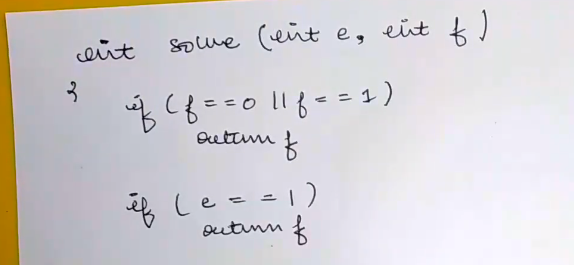 int solve (int e, int f)
{
if (f==0 || f==1)
return f
if (e==1)
return f